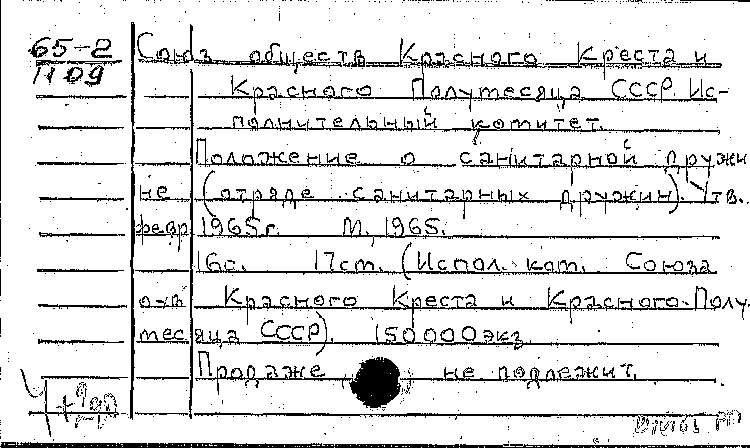 65-2
1109
Союз обществ Красного Креста и
Красного Полумесяца СССР. Ис-
полнительный комитет.
Положение о санитарной дружи
не (отряде санитарных дружин). Утв.
февр 1965 г. М., 1965.
16с. 17см. (Испол. ком. Союза
о-в Красного Креста и Красного Полу
месяца СССР). 150000 экз
Продаже не подлежит.